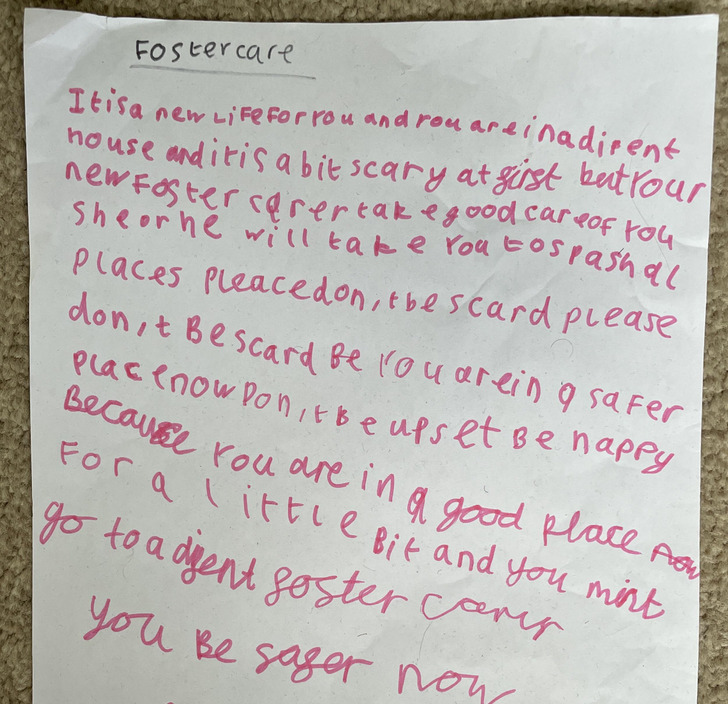 Foster care
It is a new Life For you and you are in a difent
house and it is a bit scary at first but Your
new Foster carer take good care of you
She or he will take You to spashal
places pleace don,t be scard please
don,t Be scard Be You are in a saFer
place now Don,t Be upset Be happy
Because You are in a good place now
For a little Bit and you mint
go to a difent foster carer
you Be safer now